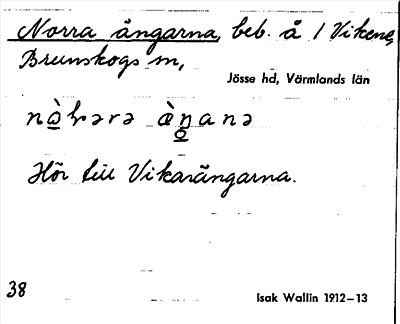 Norra ängarna, beb. å 1 Vikene,
Brunskogs sn,
Jösse hd, Värmlands län
Hör till Vikarängarna.
38
Isak Wallin 1912–13